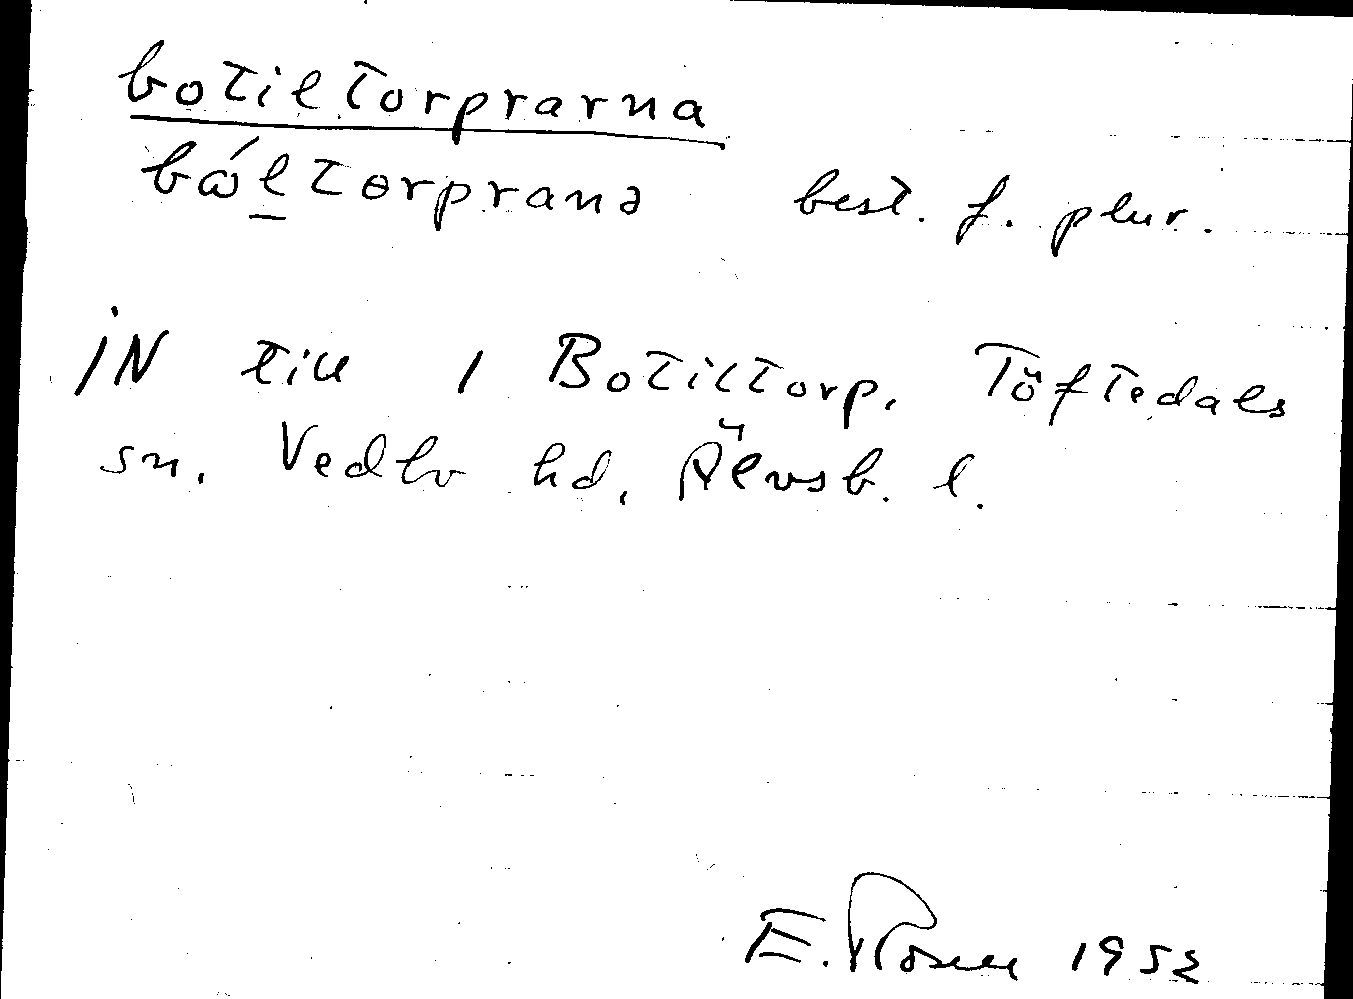 botiltorprarna
bål̲tɵrpranə best. f. plur.
iN till 1 Botiltorp, Töftedals
sn. Vedbo hd, Älvsb. l.
E. Rosell 1952